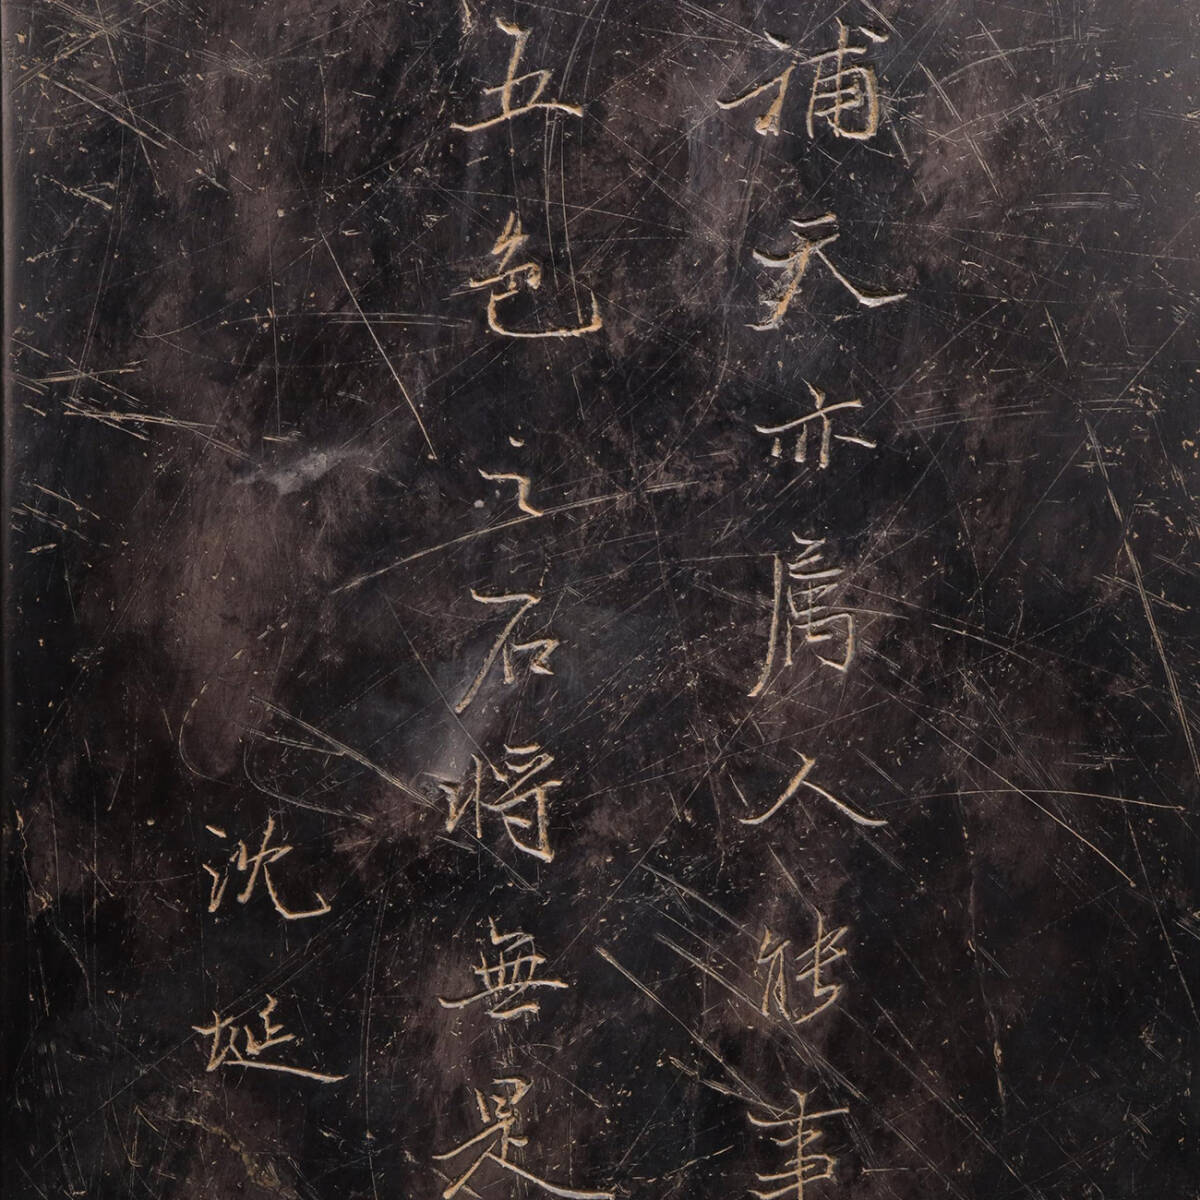 補天亦属人能事
五色之石将無是
沈埏